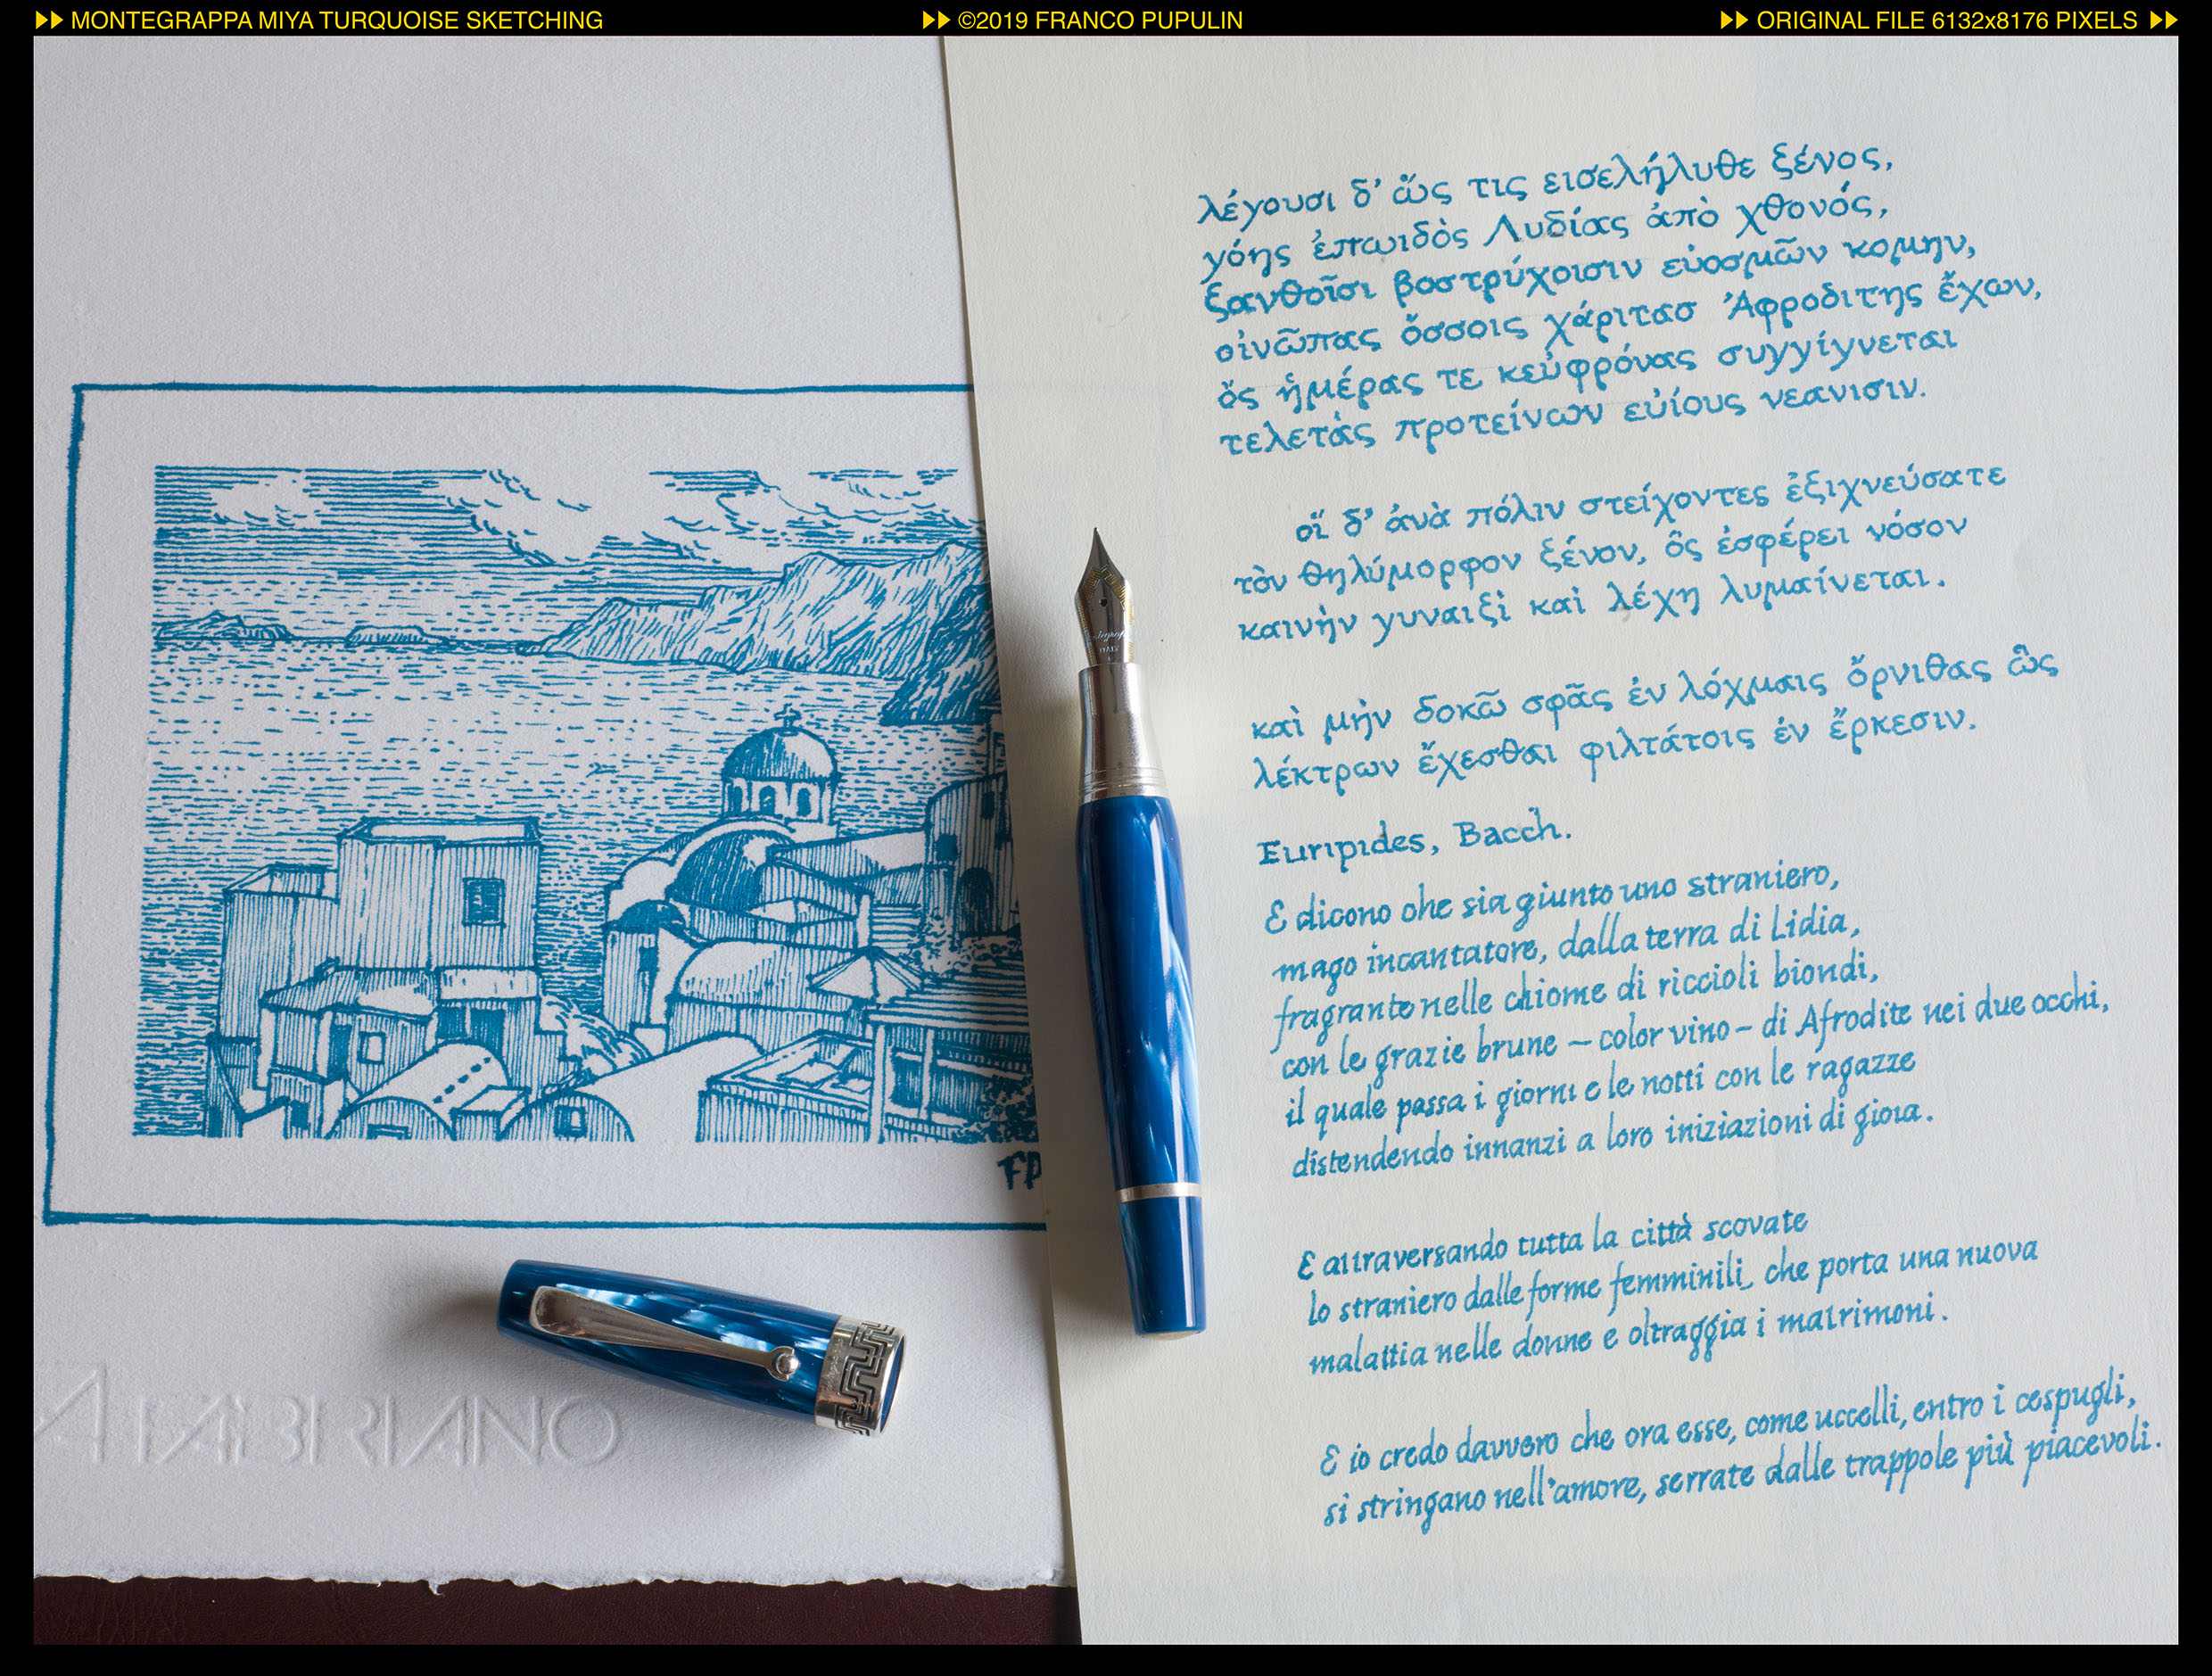 ▶▶ MONTEGRAPPA MIYA TURQUOISE SKETCHING
▶▶ ©2019 FRANCO PUPULIN
▶▶ ORIGINAL FILE 6132x8176 PIXELS ▶▶
λέγουσι δ’ ὥς τις εισελήλυθε ξένος,
γόης ἐπωιδὸς Λυδίας ἀπὸ χθονός,
ξανθοῖσι βοστρύχοισιν εὐοσμῶν κομην,
οἰνῶπας ὄσσοις χάριτασ Ἀφροδιτης ἔχων,
ὅς ἡμέρας τε κεὐφρόνας συγγίγνεται
τελετὰς προτείνων εὐίους νεανισιν.
οἵ δ’ ἀνὰ πόλιν στείχοντες ἐξιχνεύσατε
τὸν θηλύμορφον ξένον, ὃς ἐσφέρει νόσον
καινὴν γυναιξὶ καὶ λέχη λυμαίνεται.
καὶ μὴν δοκῶ σφᾶς ἐν λόχμαις ὄρνιθας ὣς
λέκτρων ἔχεσθαι φιλτάτοις ἐν ἕρκεσιν.
Euripides, Bacch.
E dicono che sia giunto uno straniero,
mago incantatore, dalla terra di Lidia,
fragrante nelle chiome di riccioli biondi,
con le grazie brune – color vino – di Afrodite nei due occhi,
il quale passa i giorni e le notti con le ragazze
distendendo innanzi a loro iniziazioni di gioia.
E attraversando tutta la città scovate
lo straniero dalle forme femminili, che porta una nuova
malattia nelle donne e oltraggia i matrimoni.
E io credo davvero che ora esse, come uccelli, entro i cespugli,
si stringano nell'amore, serrate dalle trappole più piacevoli.
FP
FABRIANO